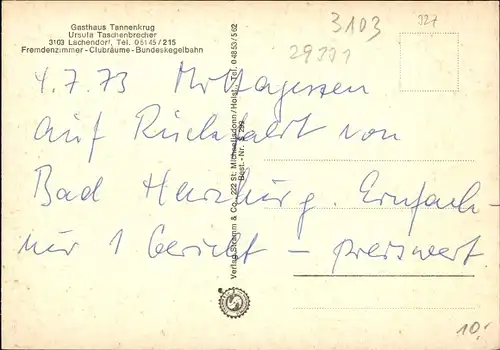 Gasthaus Tannenkrug
Ursula Taschenbrecher
3103 Lachendorf, Tel. 05145/215
Fremdenzimmer - Clubräume - Bundeskegelbahn
3103
327
29331
4.7.73 Mittagessen
auf Rückfahrt von
Bad Harzburg. Einfach -
nur 1 Gericht - preiswert
Verlag Stramm & Co., 222 St. Michaelisdonn/Holst., Tel. 04853/562
Best.-Nr.
10,-